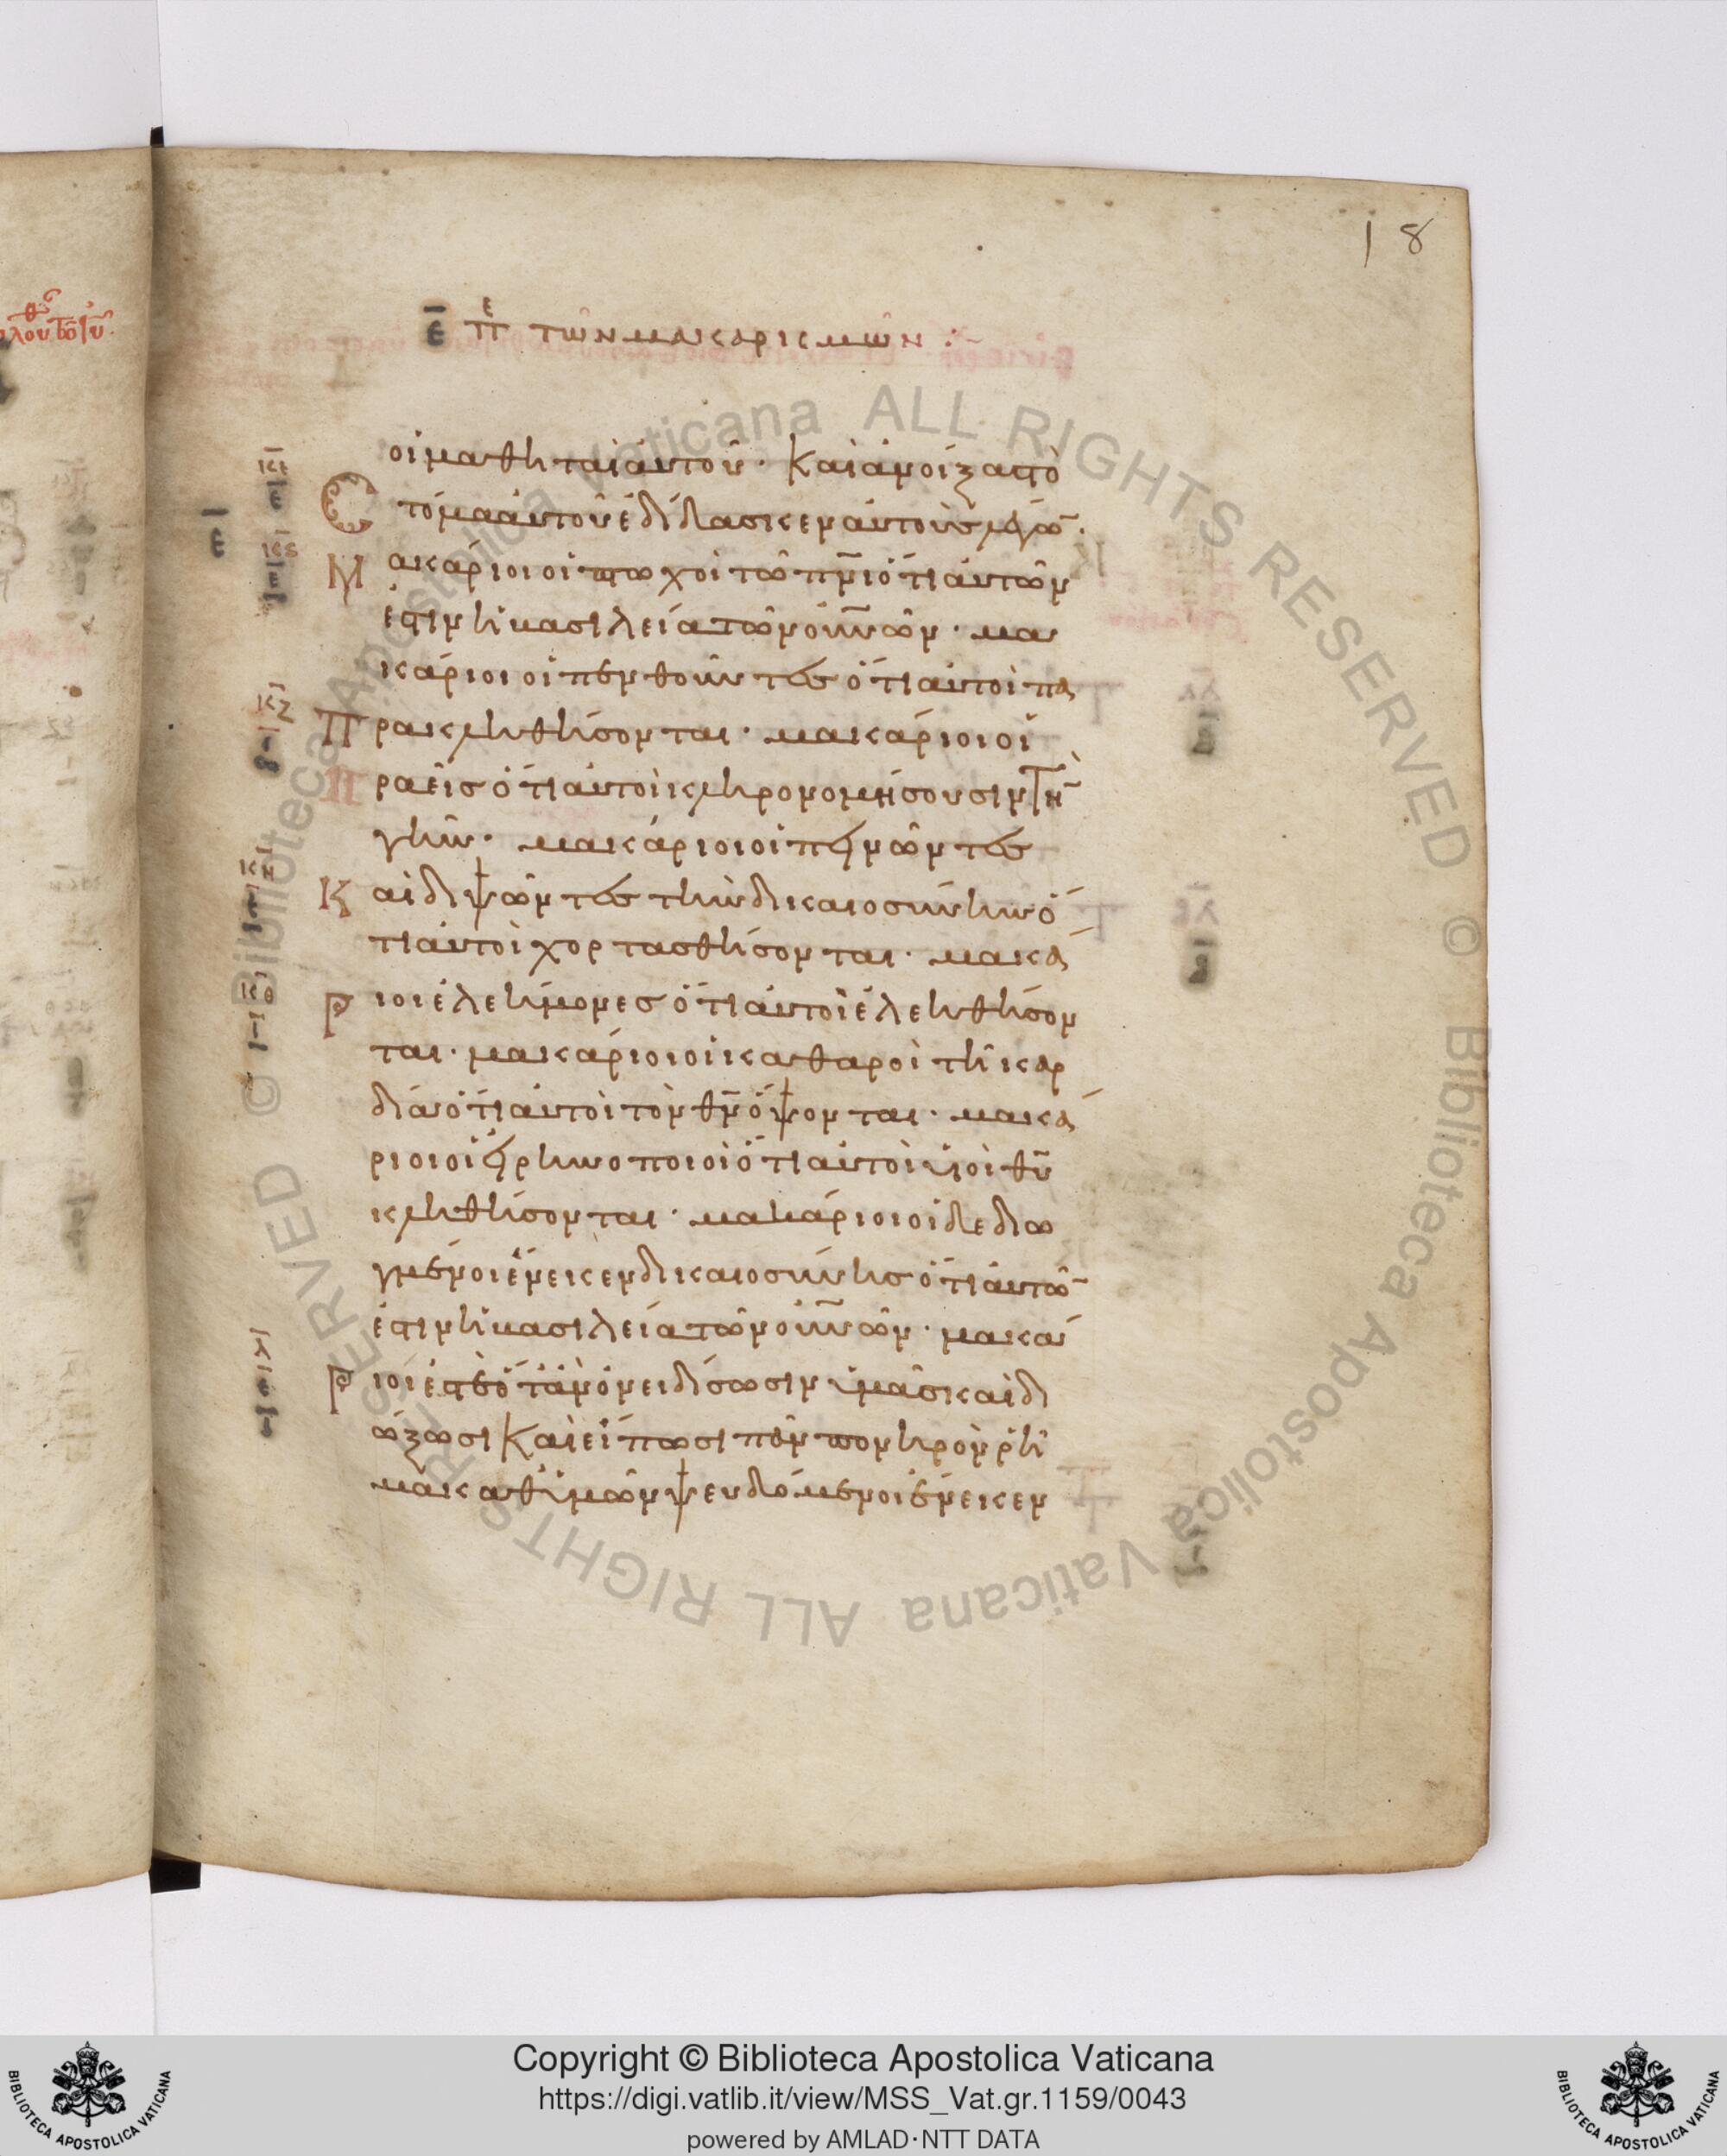 18
ε̄ πε τῶν μακαρισμῶν :~
οἱ μαθηταὶ αὐτοῦ· καὶ ἀνοίξας τὸ
Στόμα αὐτοῦ ἐδίδασκεν αὐτοὺς λέγω̄·
Μακάριοι οἱ πτωχοὶ τῶ πν̄ι ὅτι αὐτῶν
ἐστιν ἡ βασιλεία τῶν οὐν̄ῶν· μα
κάριοι οἱ πενθοῦντες ὅτι αὐτοὶ πα
ρακληθήσονται· μακάριοι οἱ
Πραεῖς ὅτι αὐτοὶ κληρονομήσουσιν τὴν
γῆν· μακάριοι οἱ πεινῶντες
Καὶ διψῶντες τὴν δικαιοσύνην ὅ
τι αὐτοὶ χορτασθήσονται· μακά
Ριοι ἐλεήμονες ὅτι αὐτοὶ ἐλεηθήσον
ται· μακάριοι οἱ καθαροὶ τῆ καρ
δία ὅτι αὐτοὶ τὸν θν̄ ὄψονται· μακά
ριοι οἱ εἰρηνοποιοὶ ὅτι αὐτοὶ υἱοὶ θῡ
κληθήσονται· μακάριοι οἱ δεδιω
γμένοι ἕνεκεν δικαιοσύνης ὅτι αὐτῶ̄
ἐστιν ἡ βασιλεία τῶν οὐν̄ῶν· μακά
Ριοί ἐστε ὅταν ὀνειδίσωσιν ὑμᾶς καὶ δι
ώξωσι καὶ εἴπωσι πᾶν πονηρὸν ῥῆ
μα καθ' ὑμῶν ψευδόμενοι ἕνεκεν
κε
κς
ε̄
κζ
κη
κθ
λ
Biblioteca Apostolica Vaticana ALL RIGHTS RESERVED © Biblioteca Apostolica Vaticana ALL RIGHTS RESERVED ©
Copyright © Biblioteca Apostolica Vaticana
https://digi.vatlib.it/view/MSS_Vat.gr.1159/0043
powered by AMLAD·NTT DATA
BIBLIOTECA APOSTOLICA VATICANA
BIBLIOTECA APOSTOLICA VATICANA